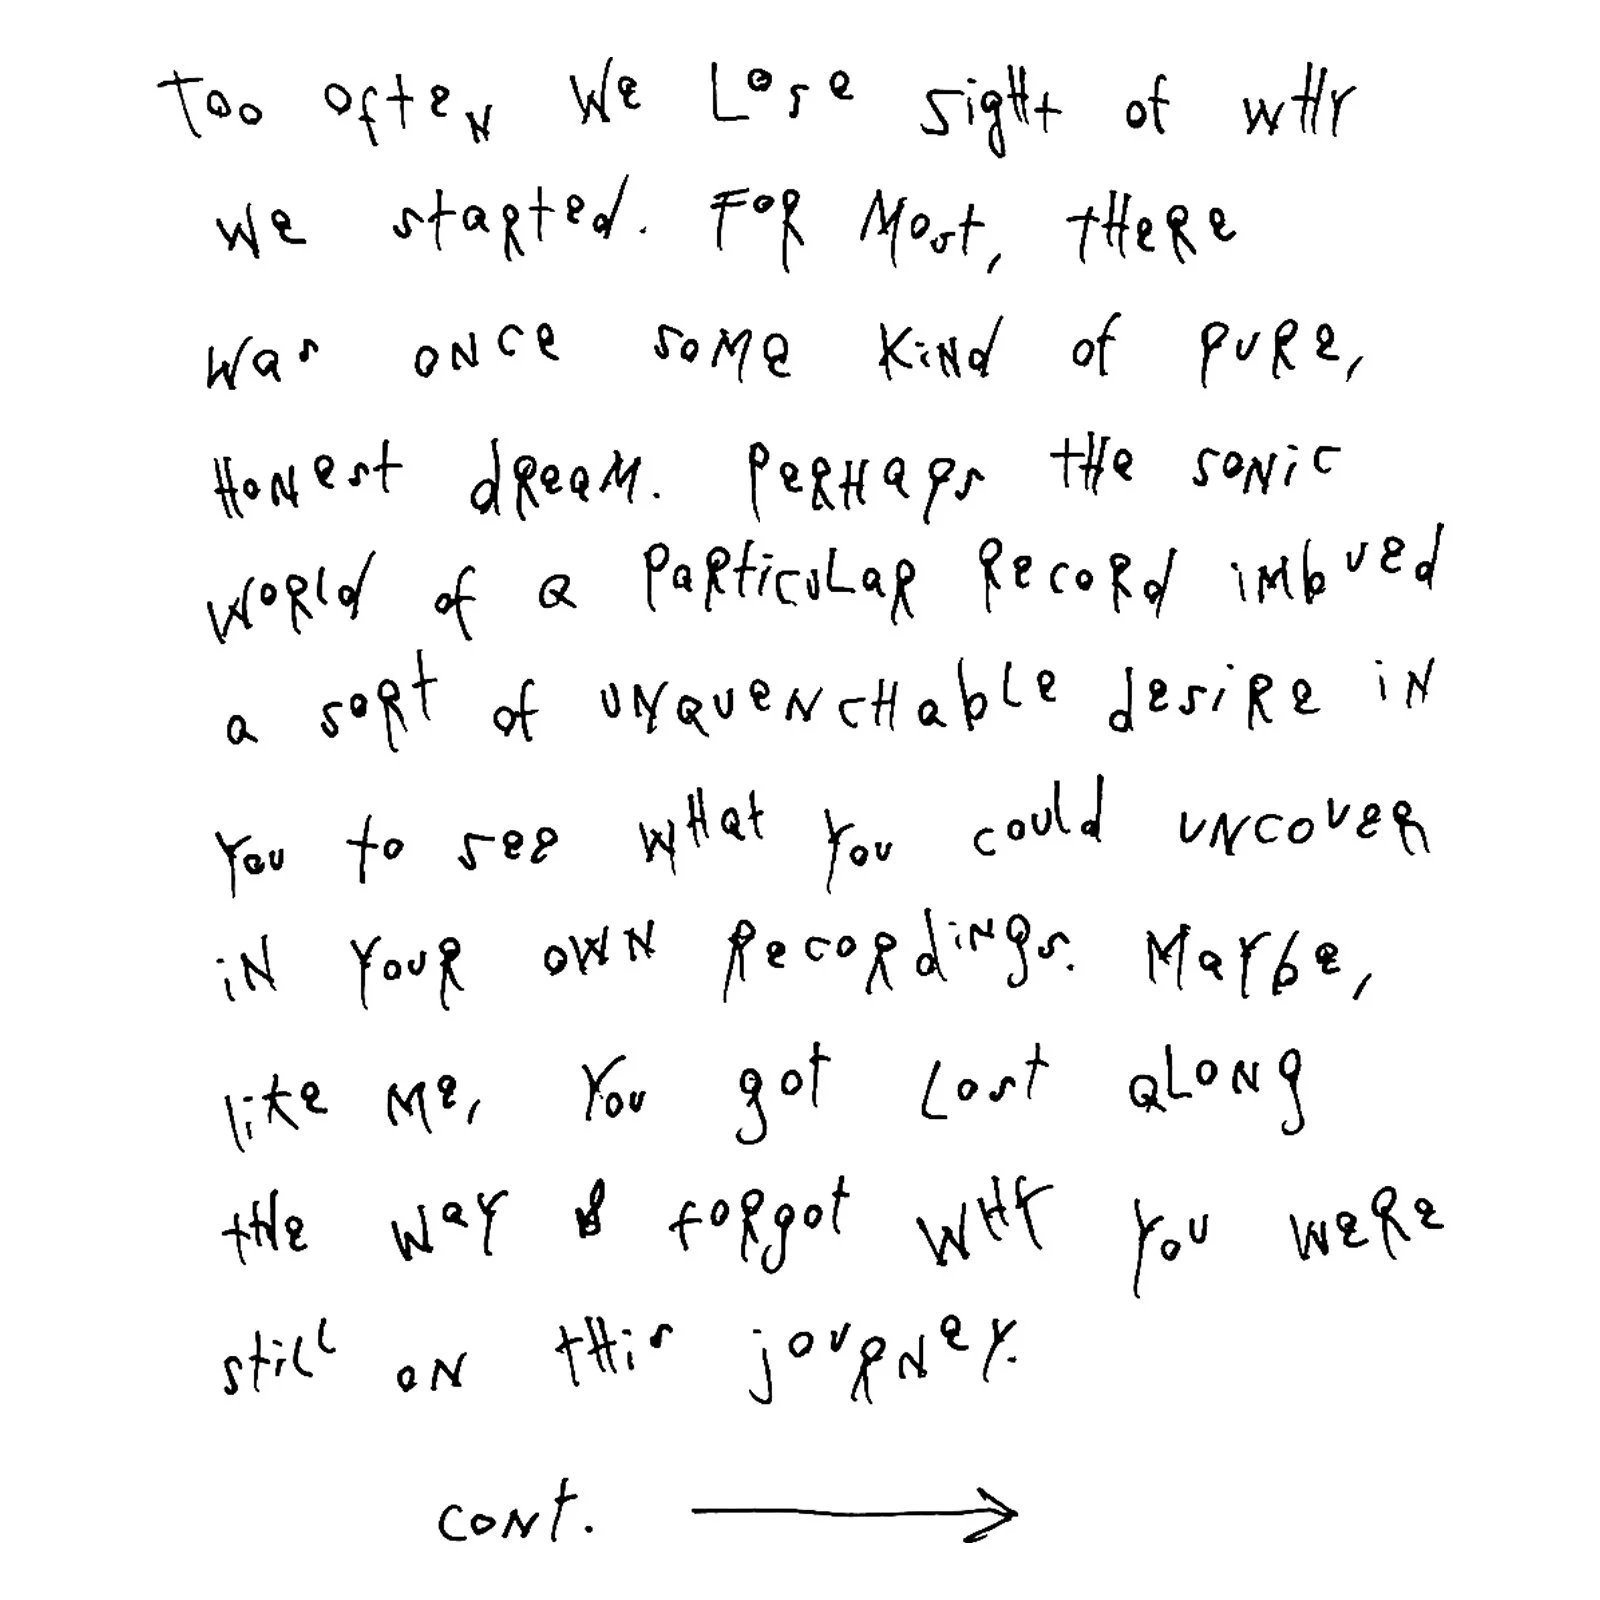 Too often we lose sight of why
we started. For most, there
was once some kind of pure,
honest dream. Perhaps the sonic
world of a particular record imbued
a sort of unquenchable desire in
you to see what you could uncover
in your own recordings. Maybe,
like me, you got lost along
the way & forgot why you were
still on this journey.
cont. →